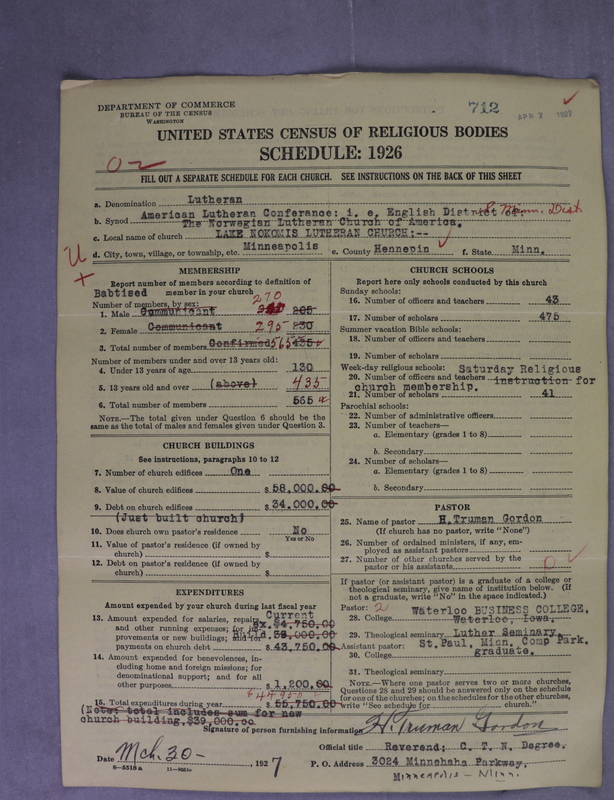 DEPARTMENT OF COMMERCE
BUREAU OF THE CENSUS
WASHINGTON
712
APR 7 1927
UNITED STATES CENSUS OF RELIGIOUS BODIES
SCHEDULE: 1926
FILL OUT A SEPARATE SCHEDULE FOR EACH CHURCH. SEE INSTRUCTIONS ON THE BACK OF THIS SHEET
a. Denomination Lutheran
American Lutheran Conference; i. e. English District of
b. Synod The Norwegian Lutheran Church of America.
c. Local name of church LAKE NOKOMIS LUTHERAN CHURCH;--
d. City, town, village, or township, etc. Minneapolis e. County Hennepin f. State Minn.
MEMBERSHIP
Report number of members according to definition of
Babtised member in your church
Number of members, by sex: 270
1. Male Communicant 205
2. Female Communicant 295 230
3. Total number of members Confirmed 565 435
Number of members under and over 13 years old:
4. Under 13 years of age 130
5. 13 years old and over (above) 435
6. Total number of members 565
NOTE.—The total given under Question 6 should be the
same as the total of males and females given under Question 3.
CHURCH BUILDINGS
See instructions, paragraphs 10 to 12
7. Number of church edifices One
8. Value of church edifices $ 58,000.00
9. Debt on church edifices $ 34,000.00
(Just built church)
10. Does church own pastor's residence? No
Yes or No
11. Value of pastor's residence (if owned by
church) $
12. Debt on pastor's residence (if owned by
church) $
EXPENDITURES
Amount expended by your church during last fiscal year
Current
13. Amount expended for salaries, repairs Ex. $4,750.00
and other running expenses; for im-
provements or new buildings; and for Build. 39,000.00
payments on church debt $ 43,750.00
14. Amount expended for benevolences, in-
cluding home and foreign missions; for
denominational support; and for all
other purposes $ 1,200.00
15. Total expenditures during year $ 55,750.00
(Note: total includes sum for new
church building, $39,000.00
CHURCH SCHOOLS
Report here only schools conducted by this church
Sunday schools:
16. Number of officers and teachers 43
17. Number of scholars 475
Summer vacation Bible schools:
18. Number of officers and teachers
19. Number of scholars
Week-day religious schools: Saturday Religious
20. Number of officers and teachers instruction for
church membership.
21. Number of scholars 41
Parochial schools:
22. Number of administrative officers
23. Number of teachers—
a. Elementary (grades 1 to 8)
b. Secondary
24. Number of scholars—
a. Elementary (grades 1 to 8)
b. Secondary
PASTOR
25. Name of pastor H. Truman Gordon
(If church has no pastor, write "None")
26. Number of ordained ministers, if any, em-
ployed as assistant pastors
27. Number of other churches served by the
pastor or his assistants 0
If pastor (or assistant pastor) is a graduate of a college or
theological seminary, give name of institution below. (If
not a graduate, write "No" in the space indicated.)
Pastor: 2 Waterloo BUSINESS COLLEGE,
28. College Waterloo, Iowa.
29. Theological seminary Luther Seminary,
Assistant pastor: St. Paul, Minn. Comp Park.
30. College graduate.
31. Theological seminary
NOTE.—Where one pastor serves two or more churches,
Questions 28 and 29 should be answered only on the schedule
for one of the churches; on the schedules for the other churches,
write "See schedule for church."
Signature of person furnishing information H. Truman Gordon
Official title Reverend; C. T. N. Degree.
Date Mch. 30- 1927 P. O. Address 3024 Minnehaha Parkway,
8-5318a Minneapolis - Minn.